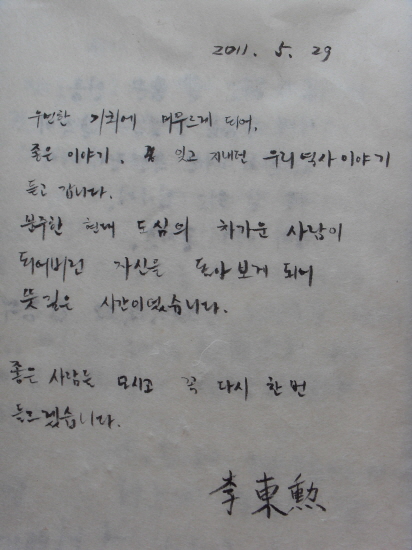 2011. 5. 29
우연한 기회에 머무르게 되어,
좋은 이야기, 잊고 지내던 우리 역사 이야기
듣고 갑니다.
분주한 현대 도심의 차가운 사람이
되어버린 자신을 돌아보게 되어
뜻깊은 시간이었습니다.
좋은 사람들 모시고 꼭 다시 한번
들르겠습니다.
李東勲